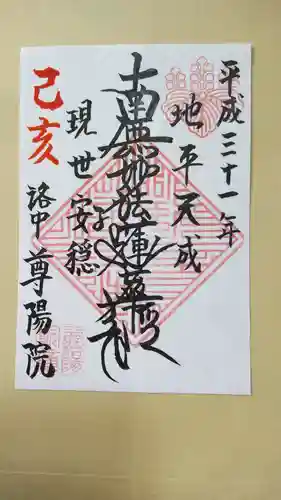 平成三十一年
地平天成
南無妙法蓮華経
現世安穏
己亥
洛中 尊陽院